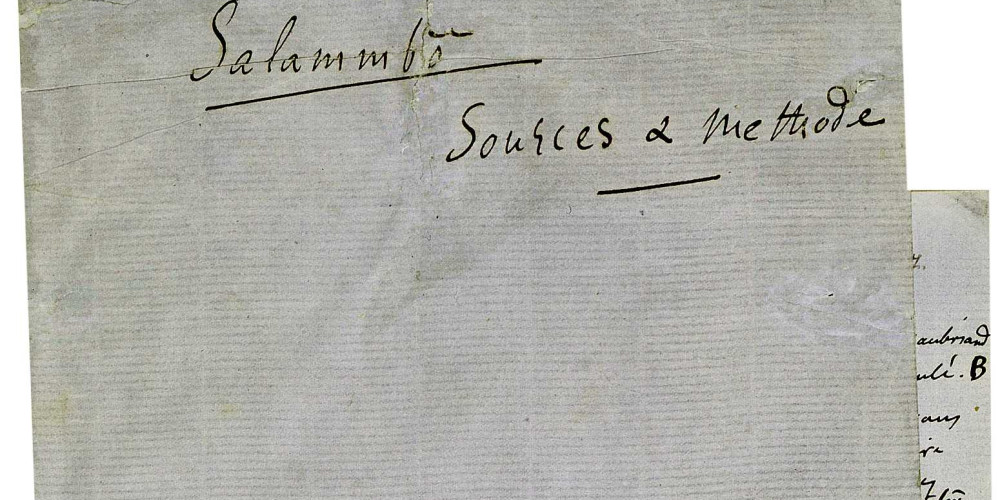 Salammbô
Sources & méthode
aubriand
ulé. B